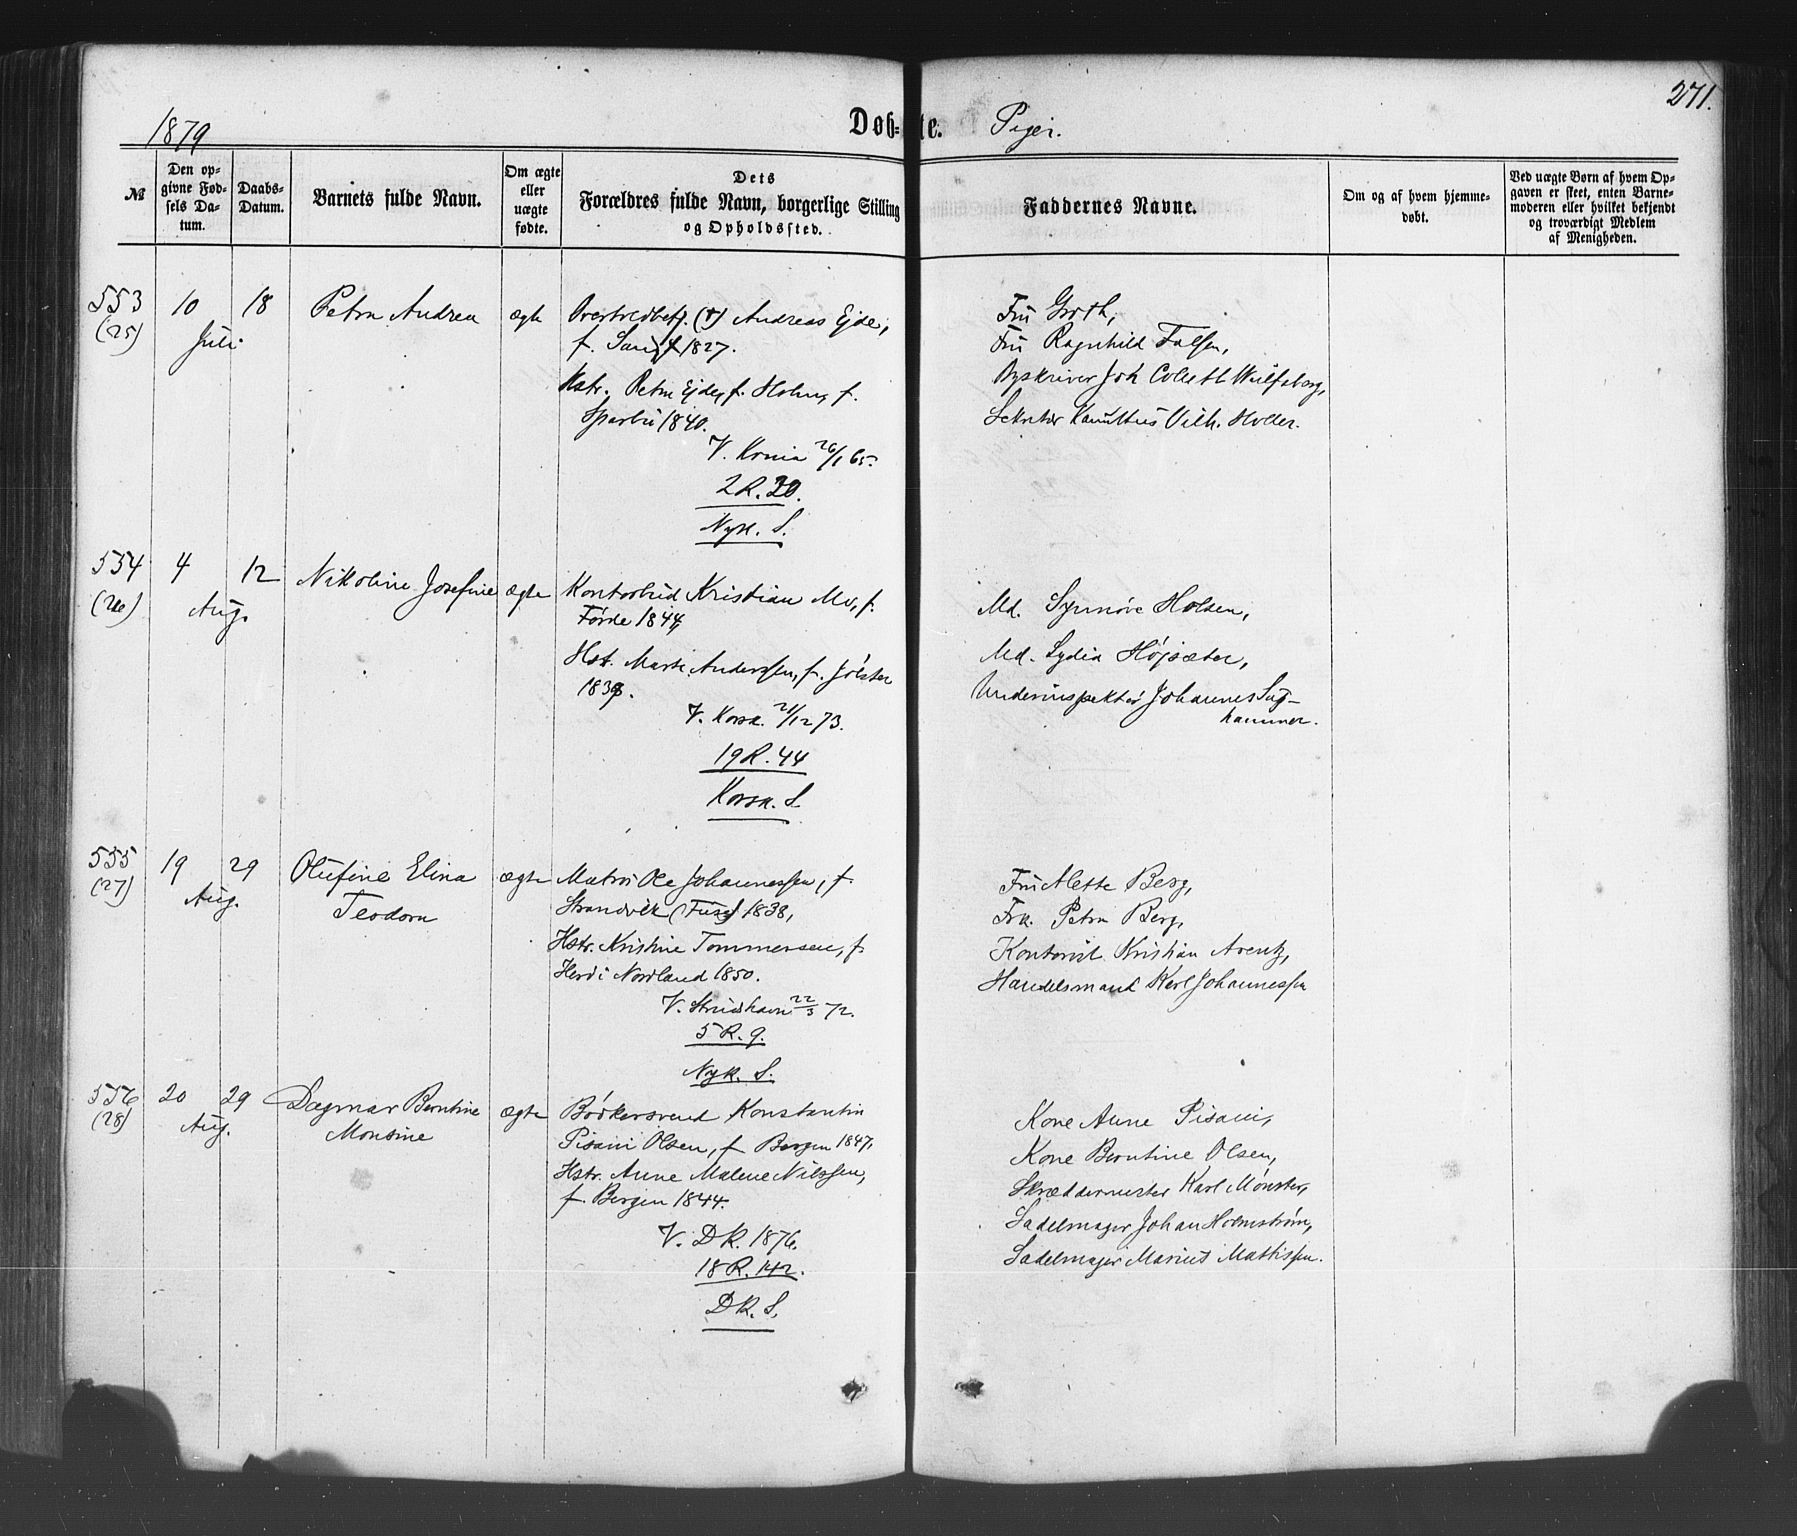 271.
1879
Døbte. Piger.
№
Den opgivne Fødsels Datum.
Daabs-Datum.
Barnets fulde Navn.
Om ægte eller uægte fødte.
Dets Forældres fulde Navn, borgerlige Stilling og Opholdssted.
Faddernes Navne.
Om og af hvem hjemmedøbt.
Ved uægte Børn af hvem Opgaven er skeet, enten Barnemoderen eller hvilket bekjendt og troværdigt Medlem af Menigheden.
553 10 18 Petra Andrea ægte
(25) Juli
(†) Andreas Ejde,
f. 1827.
Hstr. Petra Ejde, f. Holm, f.
Sparbu 1840.
V. Krnia 26/1 65.
2 R. 20.
Nyk. S.
Fru Groth,
Fru Ragnhild Falsen,
Byskriver Joh Collett Wulfsberg,
Sekretær Vilh. Holler.
554 4 12 Nikoline Josefine ægte
(26) Aug.
Kontorbud Kristian Mo, f.
Førde 1844,
Hst. Marte Anderssen, f. Jølster
1839.
V. Korsk. 21/12 73.
19 R. 44
Korsk. S.
Md. Synnøve Holsen,
Md. Lydia Højsæter,
Underinspektør Johannes Sughammer.
555 19 29 Olufine Elina ægte
(27) Aug. Teodora
Matros Ole Johannessen, f.
Strandvik (Fuse) 1838,
Hstr. Kristine Tommersen, f.
Herø i Nordland 1850.
V. 22/3 72.
5 R. 9.
Nyk. S.
Fru Alette Berg,
Frk. Petra Berg,
Kontorist Kristian Arentz,
Handelsmand Karl Johannessen
556 20 29 Dagmar Berntine ægte
(28) Aug. Monsine
Bødkersvend Konstantin
Pisani Olsen, f. Bergen 1847,
Hstr. Anne Malene Nilssen,
f. Bergen 1844.
V. DK. 1876.
18 R. 142.
DK. S.
Kone Anne Pisani,
Kone Berntine Olsen,
Skræddermester Karl Mønster,
Sadelmager Johan Holmstrøm,
Sadelmager Marius Mattissen.